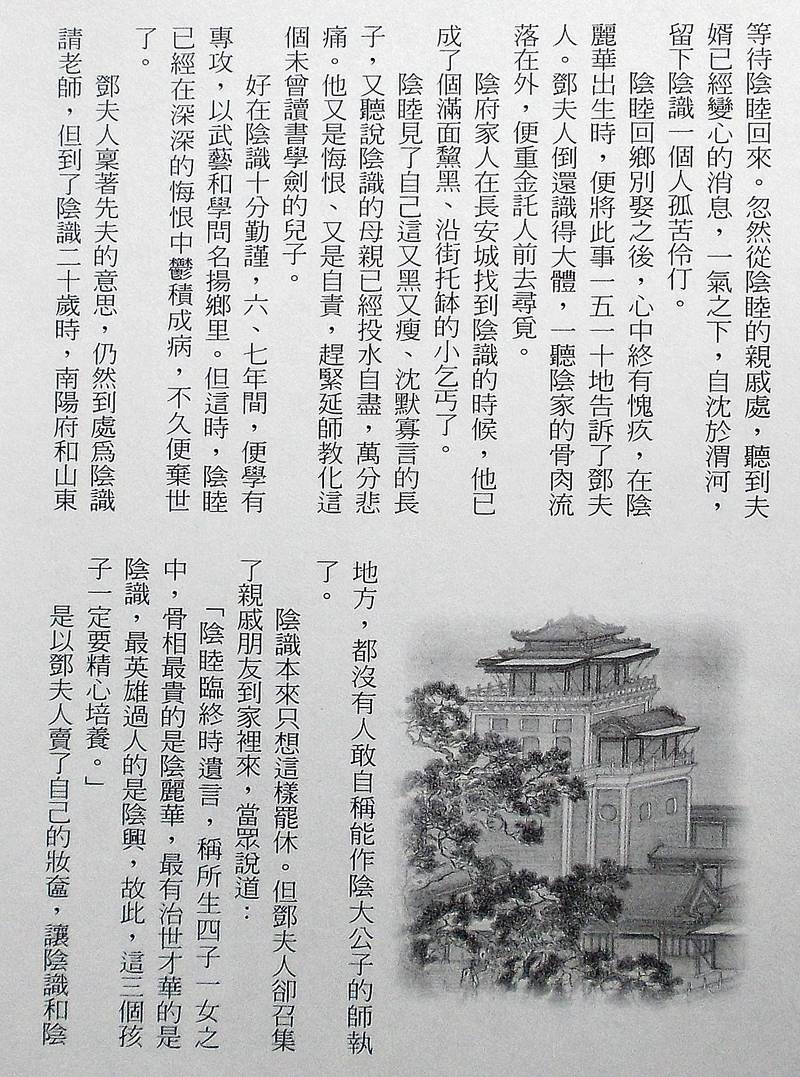 等待陰睦回來。忽然從陰睦的親戚處，聽到夫
婿已經變心的消息，一氣之下，自沈於渭河，
留下陰識一個人孤苦伶仃。
陰睦回鄉別娶之後，心中終有愧疚，在陰
麗華出生時，便將此事一五一十地告訴了鄧夫
人。鄧夫人倒還識得大體，一聽陰家的骨肉流
落在外，便重金託人前去尋覓。
陰府家人在長安城找到陰識的時候，他已
成了個滿面黧黑、沿街托缽的小乞丐了。
陰睦見了自己這又黑又瘦、沈默寡言的長
子，又聽說陰識的母親已經投水自盡，萬分悲
痛。他又是悔恨、又是自責，趕緊延師教化這
個未曾讀書學劍的兒子。
好在陰識十分勤謹，六、七年間，便學有
專攻，以武藝和學問名揚鄉里。但這時，陰睦
已經在深深的悔恨中鬱積成病，不久便棄世
了。
鄧夫人稟著先夫的意思，仍然到處為陰識
請老師，但到了陰識二十歲時，南陽府和山東
地方，都沒有人敢自稱能作陰大公子的師執
了。
陰識本來只想這樣罷休。但鄧夫人卻召集
了親戚朋友到家裡來，當眾說道：
「陰睦臨終時遺言，稱所生四子一女之
中，骨相最貴的是陰麗華，最有治世才華的是
陰識，最英雄過人的是陰興，故此，這三個孩
子一定要精心培養。」
是以鄧夫人賣了自己的妝奩，讓陰識和陰